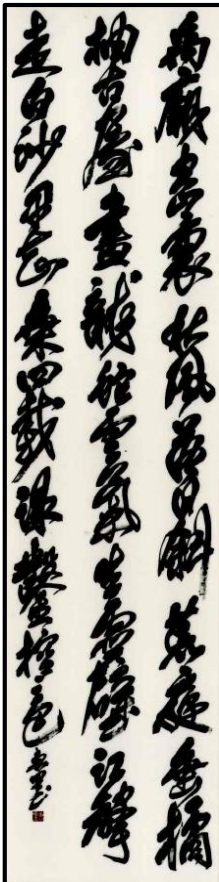 禹廟空山裏秋風落日斜荒庭垂橘
柚古屋畫龍蛇雲氣生虛壁江聲
走白沙早知乘四載疏鑿控三巴